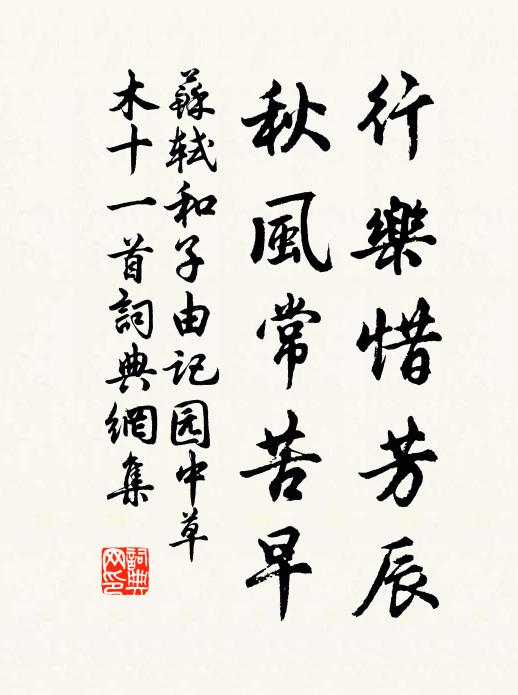 行樂惜芳辰
秋風常苦早
蘇軾和子由记园中草
木十一首詞典網集
詞典网印